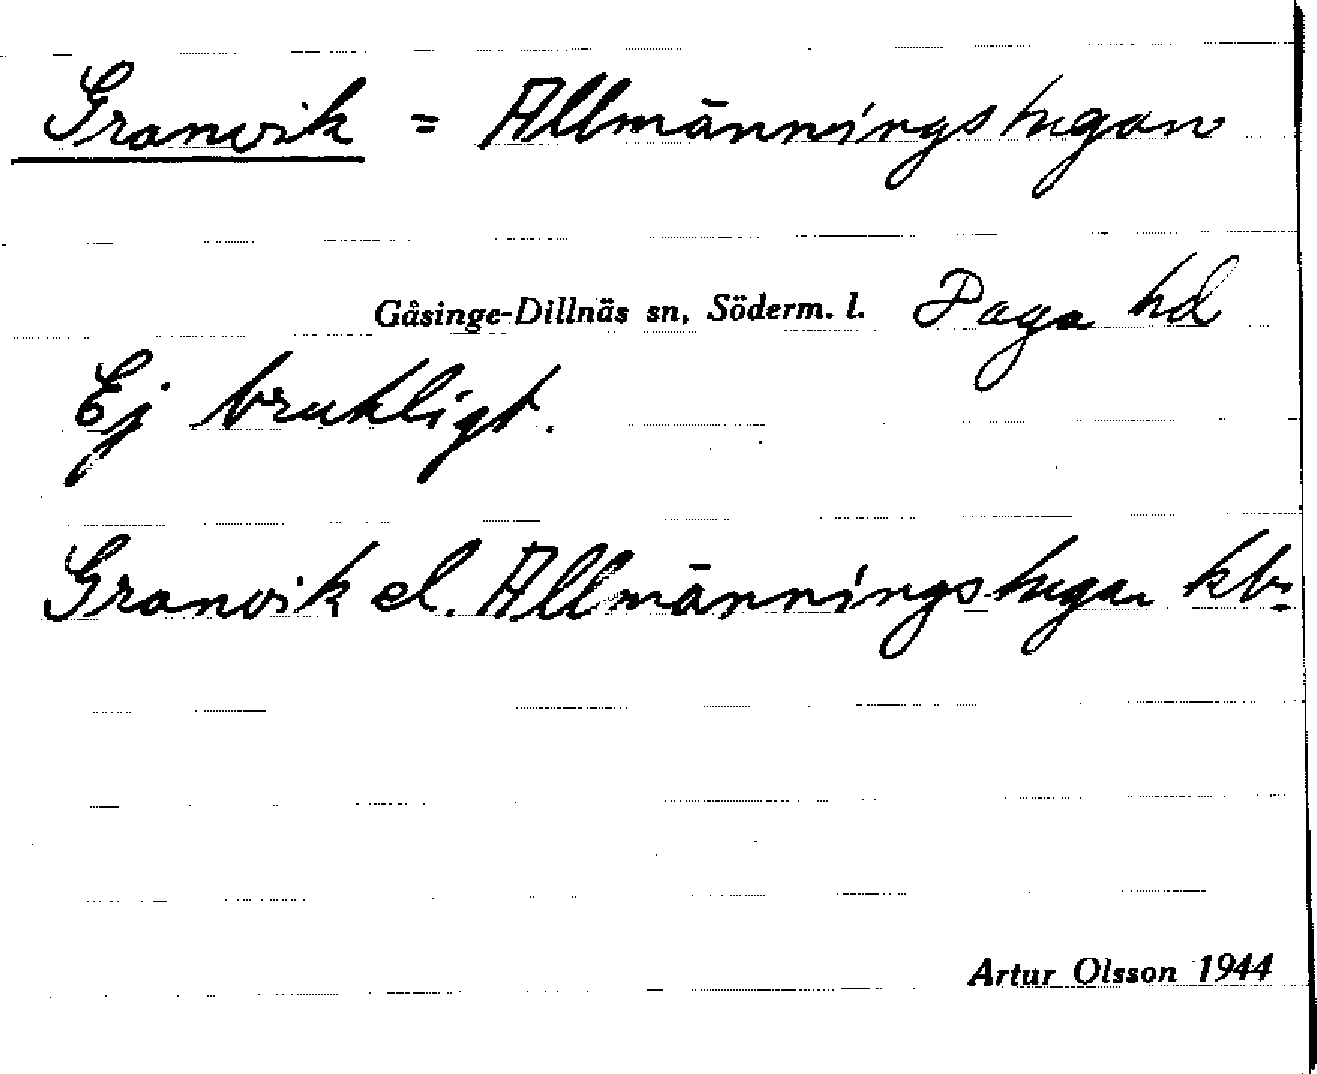 Granvik = Allmänningstugan
Gåsinge-Dillnäs sn, Söderm. l. Daga hd
Ej brukligt.
Granvik el. Allmänningstugan kb:
Artur Olsson 1944